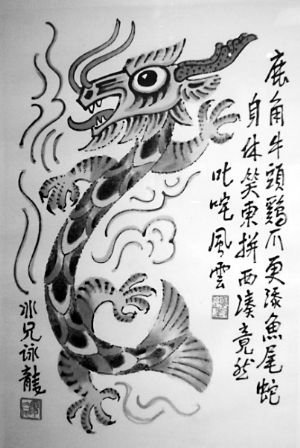 鹿角牛頭鷄爪更添魚尾蛇
身休笑東拼西湊竟然
叱咤風雲
冰兄詠龍